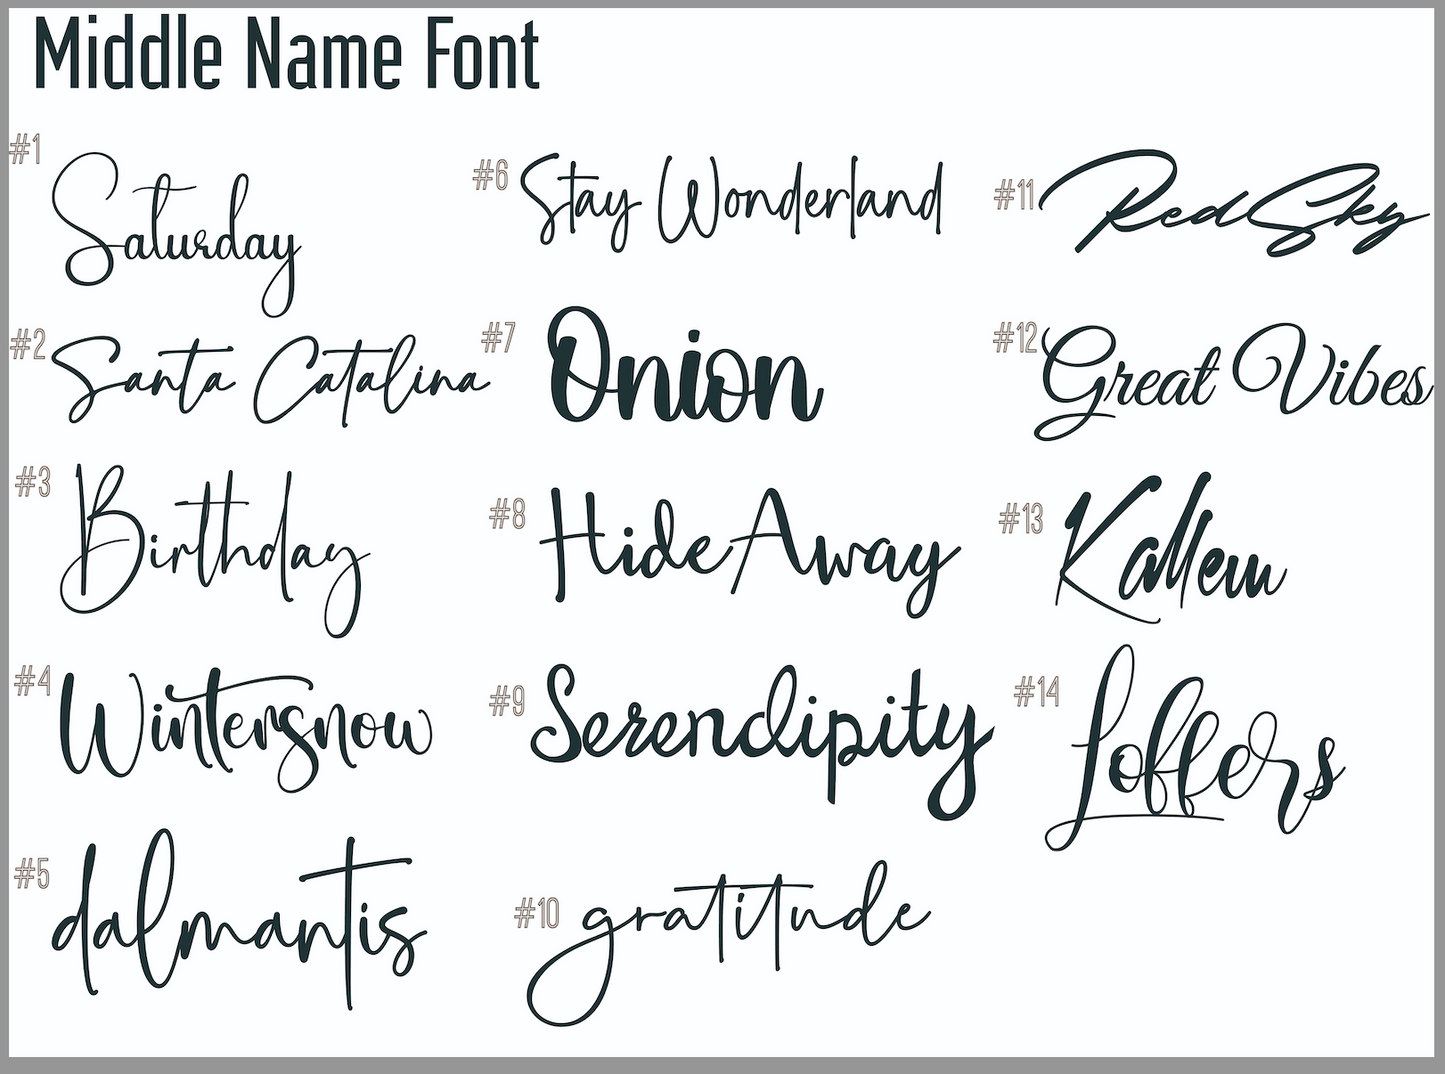 Middle Name Font
#1 Saturday
#2 Santa Catalina
#3 Birthday
#4 Wintersnow
#5 dalmantis
#6 Stay Wonderland
#7 Onion
#8 HideAway
#9 Serendipity
#10 gratitude
#11 RedSky
#12 Great Vibes
#13 Kallem
#14 Loffers